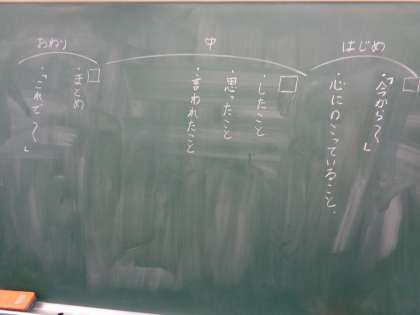 はじめ
「今から〜」
・心にのこっていること、
中
・したこと
・思ったこと
・言われたこと
おわり
・まとめ
・「これで〜」